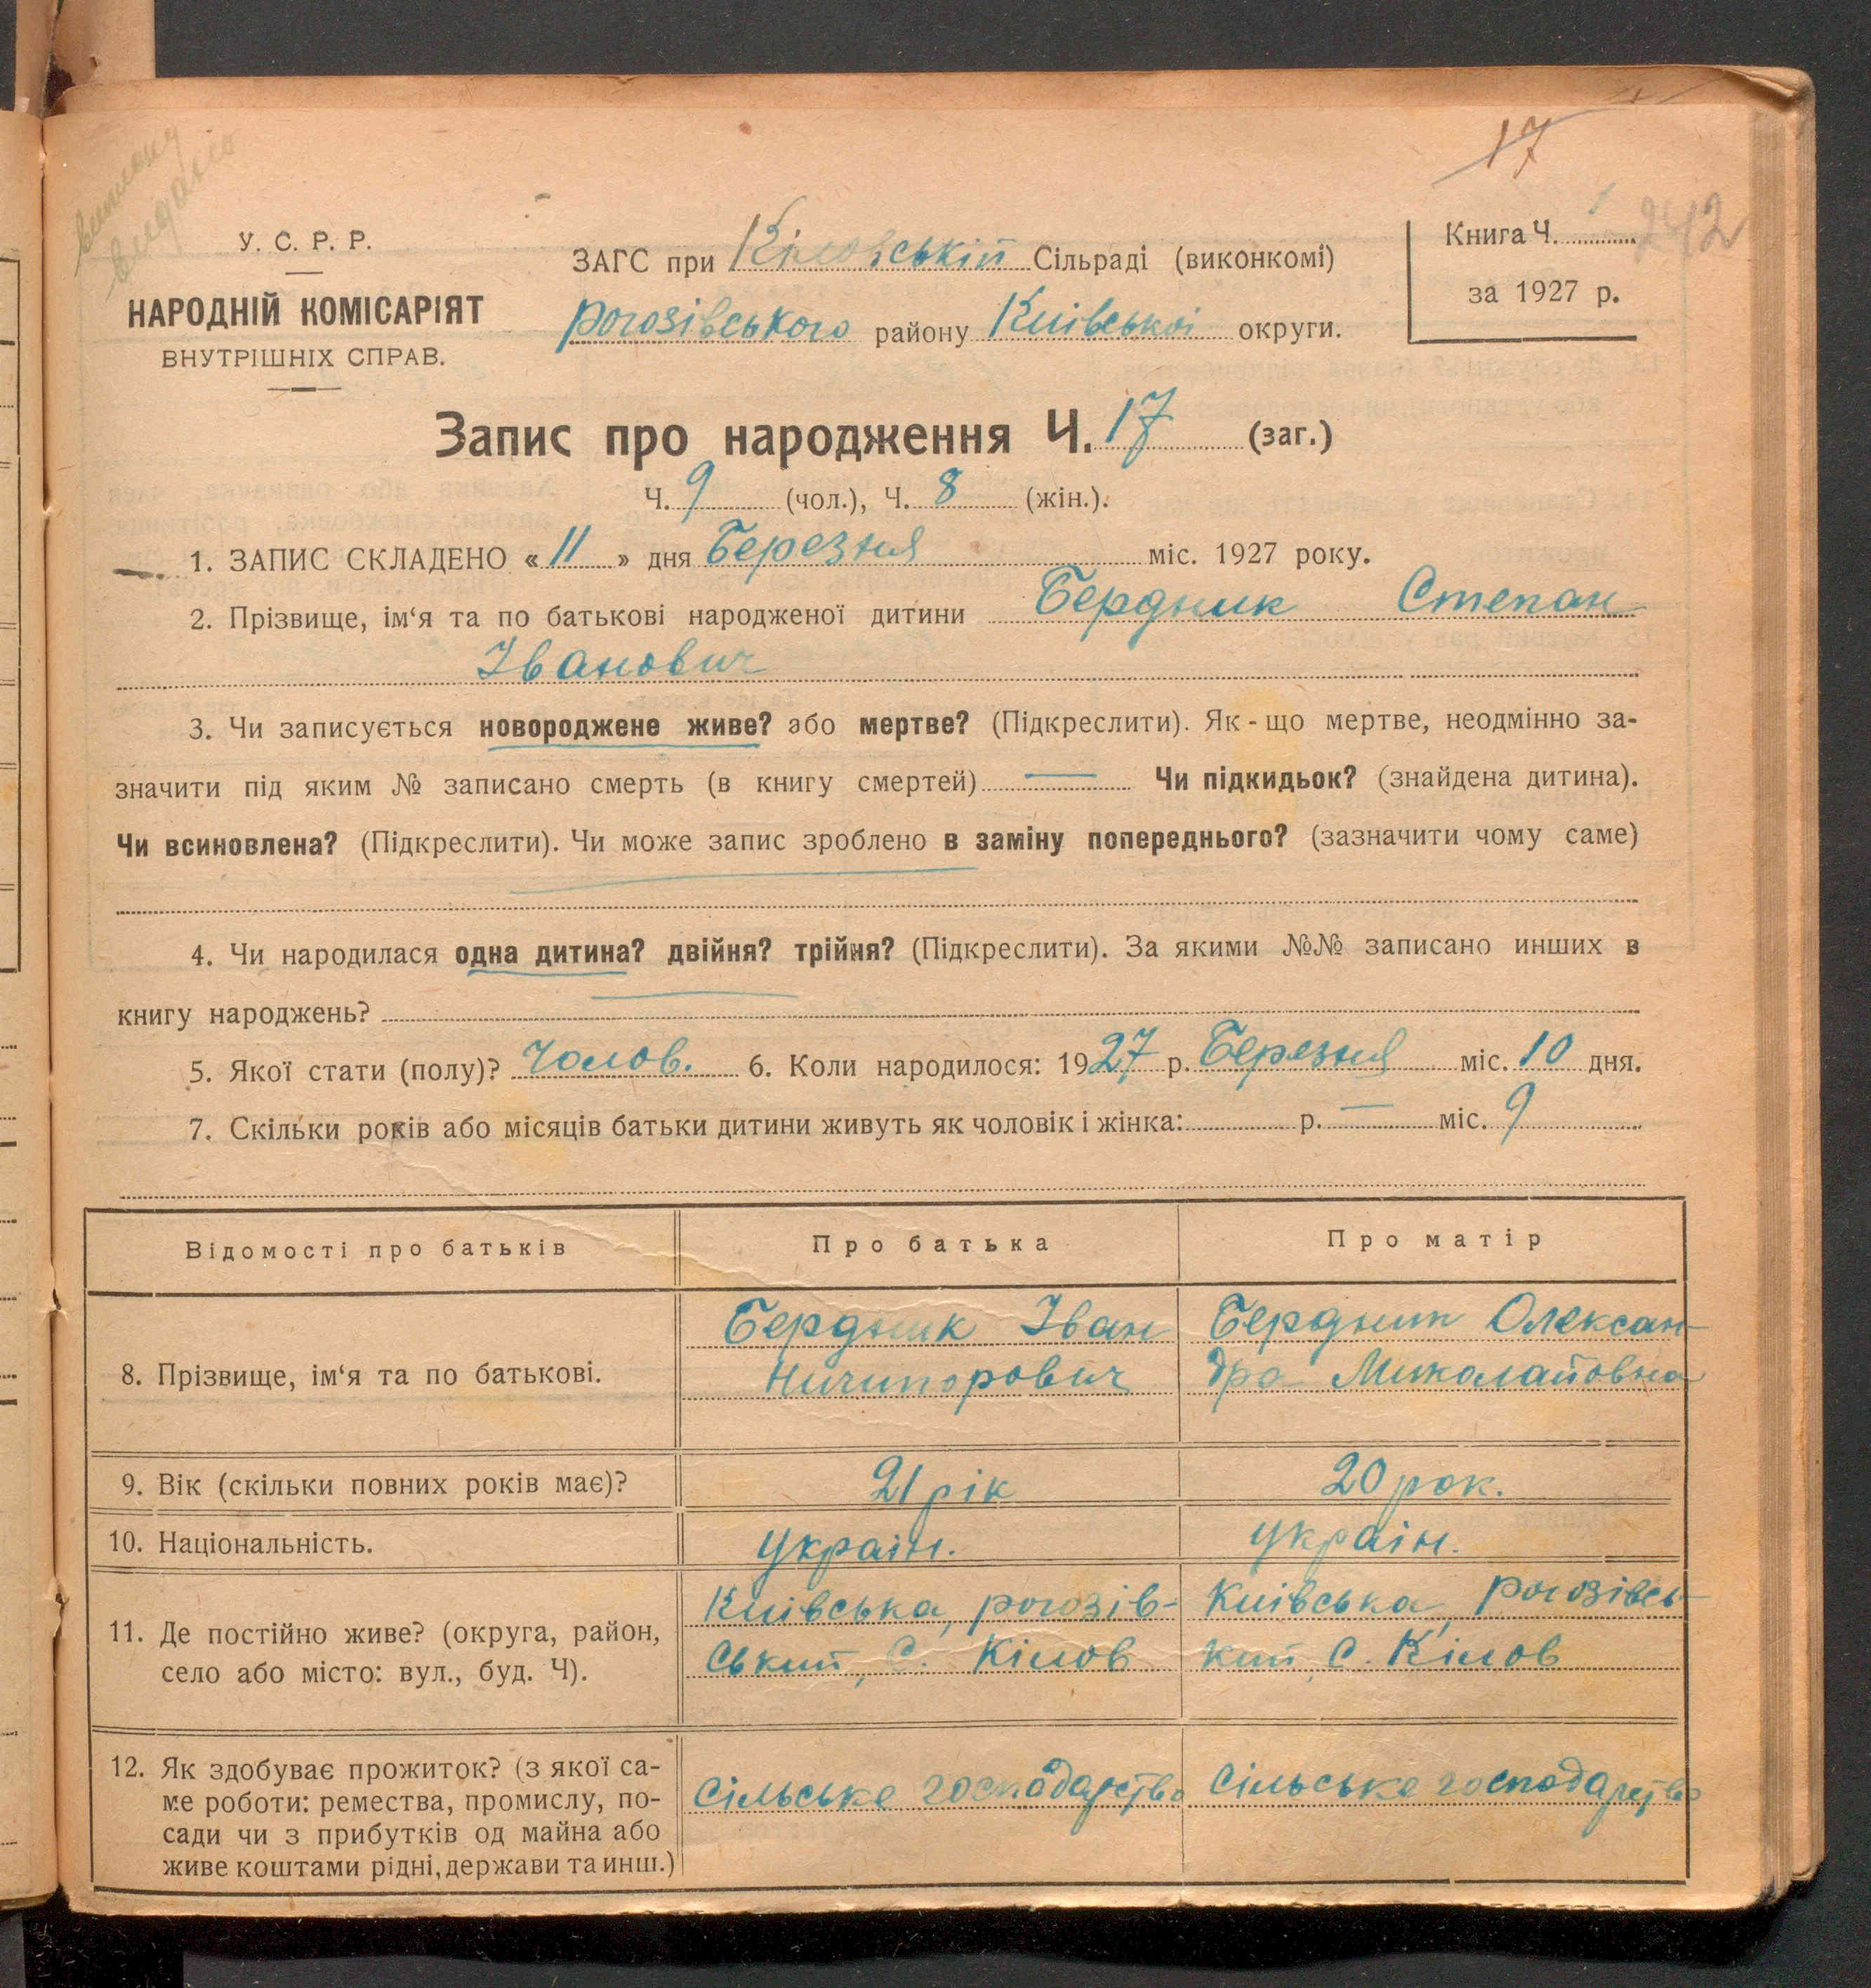 виписку
видано
17
242
У. С. Р. Р.
НАРОДНІЙ КОМІСАРІЯТ
ВНУТРІШНІХ СПРАВ.
ЗАГС при Кіловській Сільраді (виконкомі)
рогозівського району Київської округи.
Книга Ч. 1
за 1927 р.
Запис про народження Ч. 17 (заг.)
Ч. 9 (чол.), Ч. 8 (жін.).
1. ЗАПИС СКЛАДЕНО « 11 » дня Березня міс. 1927 року.
2. Прізвище, ім‘я та по батькові народженої дитини Бердник Степан
Іванович
3. Чи записується новороджене живе? або мертве? (Підкреслити). Як-що мертве, неодмінно за-
значити під яким № записано смерть (в книгу смертей) — Чи підкидьок? (знайдена дитина).
Чи всиновлена? (Підкреслити). Чи може запис зроблено в заміну попереднього? (зазначити чому саме)
4. Чи народилася одна дитина? двійня? трійня? (Підкреслити). За якими №№ записано инших в
книгу народжень?
5. Якої стати (полу)? Чолов. 6. Коли народилося: 1927 р. Березня міс. 10 дня.
7. Скільки років або місяців батьки дитини живуть як чоловік і жінка: р. — міс. 9
Відомості про батьків Про батька Про матір
8. Прізвище, ім‘я та по батькові.
Бердник Іван
Ничипорович
Бердник Олексан-
дра Миколайовна
9. Вік (скільки повних років має)? 21 рік 20 рок.
10. Національність. україн. україн.
11. Де постійно живе? (округа, район,
село або місто: вул., буд. Ч).
Київська, рогозів-
ський, с. Кілов
Київська, рогозівсь-
кий, с. Кілов
12. Як здобуває прожиток? (з якої са-
ме роботи: ремества, промислу, по-
сади чи з прибутків од майна або
живе коштами рідні, держави та инш.)
Сільське господарство
Сільське господарство